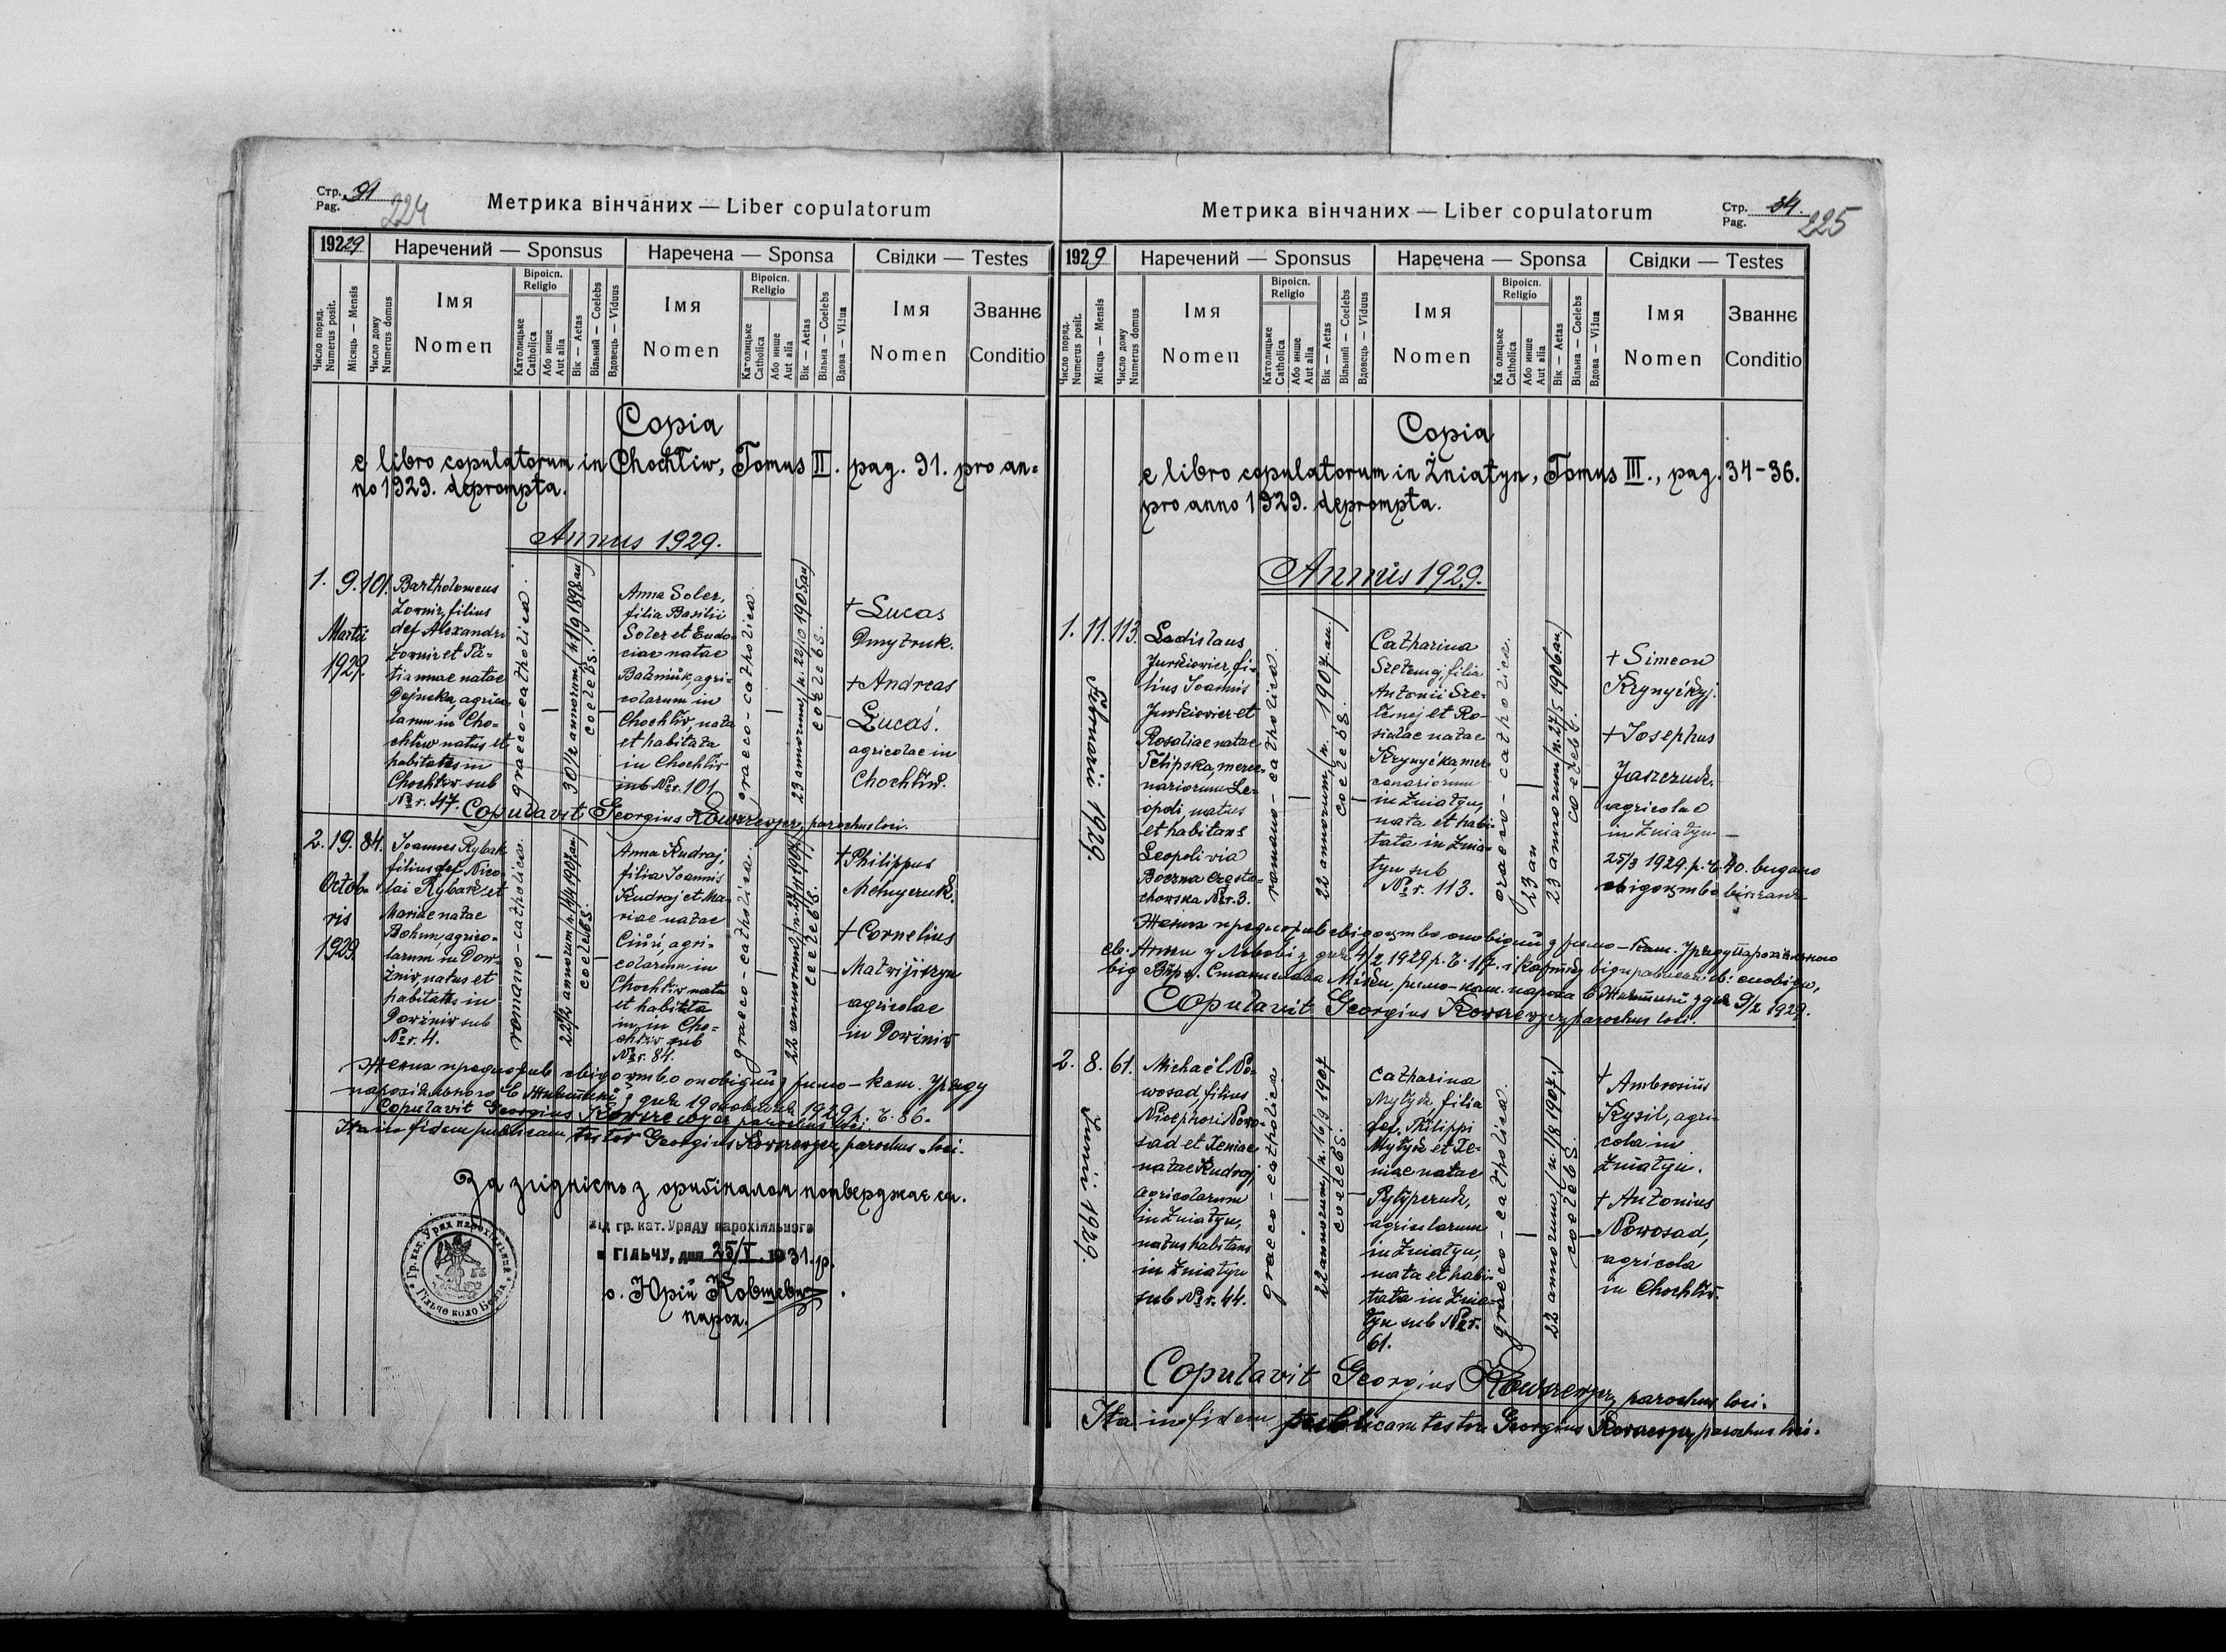 Стр. 91
Pag.
224
Метрика вінчаних — Liber copulatorum
1929
Наречений — Sponsus
Наречена — Sponsa
Свідки — Testes
Число поряд.
Numerus posit.
Місяць — Mensis
Число дому
Numerus domus
Імя
Nomen
Віроісп.
Religio
Католицьке
Catholica
Або инше
Aut alia
Вік — Aetas
Вільний — Coelebs
Вдовець — Viduus
Імя
Nomen
Віроісп.
Religio
Католицьке
Catholica
Або инше
Aut alia
Вік — Aetas
Вільна — Coelebs
Вдова — Vidua
Імя
Nomen
Званнє
Conditio
Copia
e libro copulatorum in Chochłiw, Tomus II. pag. 91. pro an=
no 1929. deprompta.
Annus 1929.
1. 9. 101.
Martii
1929.
Bartholomeus
filius
def Alexandri
et Ta=
tiannae natae
agrico
larum in Cho=
chłiw natus et
habitans in
Chochłiw sub
Nr. 47.
graeco-catholica.
30 1/2 annorum
coelebs.
Anna Soler,
filia Basilii
Soler et Eudo
ciae natae
agri=
colarum in
Chochłiw, nata
et habitata
in Chochłiw
sub Nr. 101
graeco-catholica
23 annorum /n. 22/10 1905 an/
coelebs.
+ Lucas
Dmytruk.
+ Andreas
Lucas.
agricolae in
Chochłiw.
Copulavit Georgius Kowszewycz, parochus loci.
2. 19. 84.
Octob=
ris
1929.
Joannes Rybak
filius def. Nico=
lai Rybak et
Mariae natae
Bohun, agrico=
larum in Dow=
żniw, natus et
habitans in
Dowżniw sub
Nr. 4.
romano-catholica.
22 1/2 annorum
coelebs.
Anna Kudraj,
filia Joannis
Kudraj et Ma=
riae natae
agri=
colarum in
Chochłiw nata
et habitata
in Cho=
chłiw sub
Nr. 84.
graeco-catholica.
22 annorum
coelebs.
+ Philippus
Melnyczuk.
+ Cornelius
Matwijiszyn
agricolae
in
Жених предложив свідоцтво оповідий з римо-кат. Уряду
парохіяльного в з дня 19 1929 р. Ч. 86.
Copulavit Georgius Kowszewycz parochus loci.
Ita in fidem publicam testor Georgius Kowszewycz, parochus loci.
За згідність з оригіналом потверджається.
Від гр. кат. Уряду парохіяльного
в ГІЛЬЧУ, дня 25/V. 1931. р.
о. Юрій Ковшевич
парох.
Гр. кат. Уряд парохіяльний
Гільче коло Белза
Стр. 34.
Pag.
225
Метрика вінчаних — Liber copulatorum
1929
Наречений — Sponsus
Наречена — Sponsa
Свідки — Testes
Число поряд.
Numerus posit.
Місяць — Mensis
Число дому
Numerus domus
Імя
Nomen
Віроісп.
Religio
Католицьке
Catholica
Або инше
Aut alia
Вік — Aetas
Вільний — Coelebs
Вдовець — Viduus
Імя
Nomen
Віроісп.
Religio
Ка олицьке
Catholica
Або инше
Aut alia
Вік — Aetas
Вільна — Coelebs
Вдова — Vidua
Імя
Nomen
Званнє
Conditio
Copia
e libro copulatorum in Żniatyn, Tomus III., pag. 34-36.
pro anno 1929. deprompta.
Annus 1929.
1. 11. 113.
Februarii 1929.
Ladislaus
Jurkiewicz, fi=
lius Joannis
Jurkiewicz et
Rosaliae natae
merce=
nariorum Le=
opoli, natus
et habitans
Leopoli via
Boczna
Nr. 3.
romano-catholica.
22 annorum /n. 1907. an./
coelebs.
Catharina
filia
Antonii
et Ro=
saliae natae
mer=
cenariorum
in Żniatyn,
nata et habi=
tata in Żnia=
tyn sub
Nr. 113.
graeco-catholica.
23 an
23 annorum /n. 27/5 1906 an/
coelebs.
+ Simeon
+ Josephus
Jaszczuk.
agricolae
in Żniatyn
25/3 1929. р. Ч. 40. видано
свідоцтво вінчання
Жених предложив свідоцтво оповідий з римо-кат. Уряду парохіяльного
св. Анни у Львові з дня 4/2 1929 р. Ч. 117. і
від Станислава римо-кат. пароха в з дня 9/2 1929.
Copulavit Georgius Kowszewycz, parochus loci.
2. 8. 61.
Junii 1929.
Michaël No=
wosad, filius
Nicephori Nowo
sad et Xeniae
natae Kudraj
agricolarum
in Żniatyn,
natus habitans
in Żniatyn
sub Nr. 44.
graeco-catholica
22 annorum /n. 16/9 1907
coelebs.
Catharina
Mytyk, filia
def. Philippi
Mytyk et Xe=
niae natae
Pylypczuk,
agricolarum
in Żniatyn,
nata et habi=
tata in Żnia=
tyn sub Nr.
61.
graeco-catholica.
22 annorum /n. 1/8 1907./
coelebs.
+ Ambrosius
Kysil, agri=
cola in
Żniatyn.
+ Antonius
Nowosad,
agricola
in Chochłiw.
Copulavit Georgius Kowszewycz, parochus loci.
Ita in fidem publicam testor Georgius Kowszewycz, parochus loci.